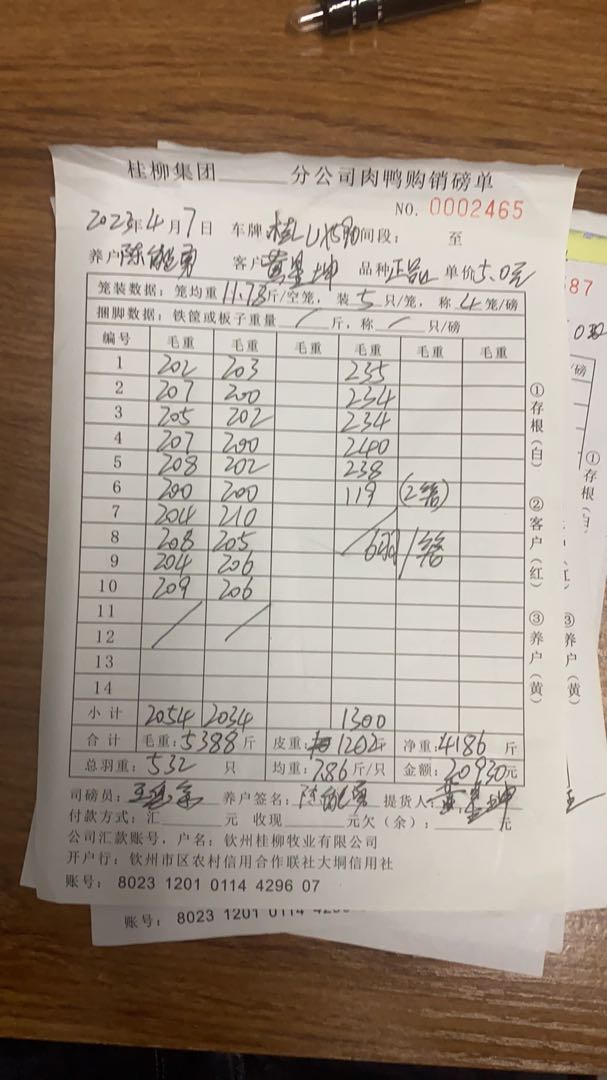 桂柳集团______分公司肉鸭购销磅单
NO. 0002465
2023年4月7日 车牌 间段： 至
养户陈能勇 客户黄呈坤 品种正品 单价5.0元
笼装数据：笼均重11.78斤/空笼，装5只/笼，称4笼/磅
捆脚数据：铁筐或板子重量/斤，称/只/磅
编号 毛重 毛重 毛重 毛重 毛重 毛重
1 202 203 235
2 207 200 234
3 205 202 234
4 207 200 240
5 208 202 238
6 200 200 119 (2笼)
7 204 210
8 208 205 6羽/笼
9 204 206
10 209 206
11
12
13
14
小计 2054 2034 1300
合计 毛重：5388斤 皮重：1202斤 净重：4186斤
总羽重：532只 均重：7.86斤/只 金额：20930元
司磅员： 养户签名：陈能勇 提货人：黄呈坤
付款方式：汇______元 收现______元欠（余）：______元
公司汇款账号，户名：钦州桂柳牧业有限公司
开户行：钦州市区农村信用合作联社大垌信用社
账号：8023 1201 0114 4296 07
①存根（白）
②客户（红）
③养户（黄）
账号：8023 1201 0114 4296
87
/磅
①存根（白）
③养户（黄）